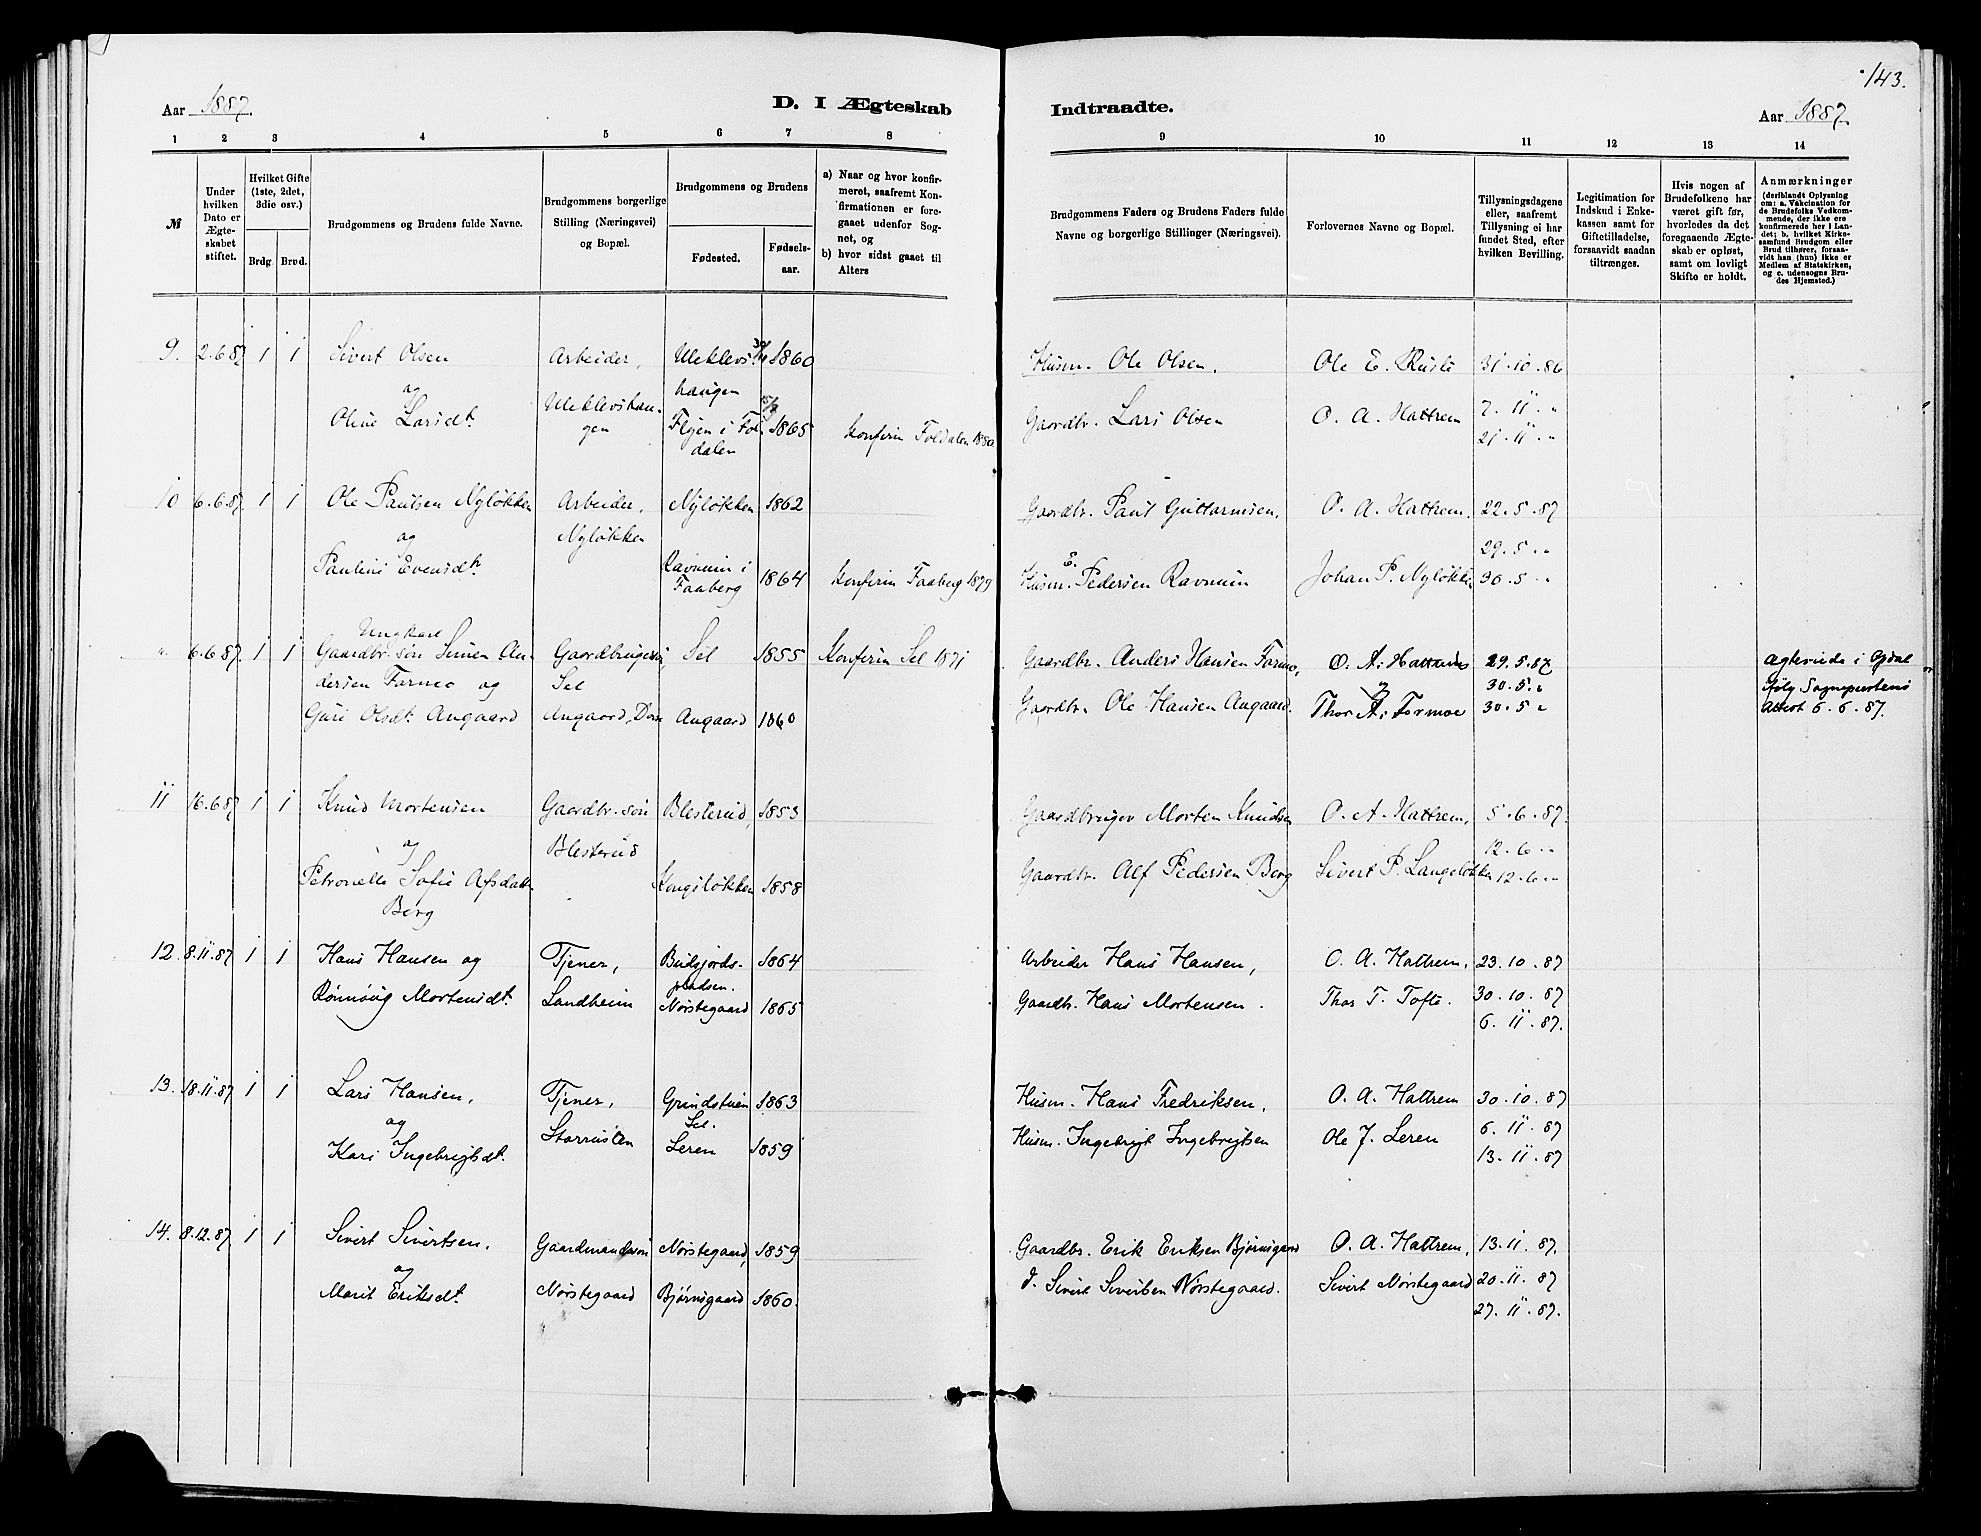 143.
Aar 1887.
D. I Ægteskab Indtraadte.
Aar 1887.
1 2 3 4 5 6 7 8 9 10 11 12 13 14
№
Under hvilken Dato er Ægteskabet stiftet.
Hvilket Gifte (1ste, 2det, 3die osv.)
Brdg. Brud.
Brudgommens og Brudens fulde Navne.
Brudgommens borgerlige Stilling (Næringsvei) og Bopæl.
Brudgommens og Brudens
Fødested.
Fødselsaar.
a) Naar og hvor konfirmeret, saafremt Konfirmationen er foregaaet udenfor Sognet, og
b) hvor sidst gaaet til Alters
Brudgommens Faders og Brudens Faders fulde Navne og borgerlige Stillinger (Næringsvei).
Forlovernes Navne og Bopæl.
Tillysningsdagene eller, saafremt Tillysning ei har fundet Sted, efter hvilken Bevilling.
Legitimation for Indskud i Enkekassen samt for Giftetilladelse, forsaavidt saadan tiltrænges.
Hvis nogen af Brudefolkene har været gift før, hvorledes da det foregaaende Ægteskab er opløst, samt om lovligt Skifte er holdt.
Anmærkninger (deriblandt Oplysning om: a. Vakcination for de Brudefolks Vedkommende, der ikke ere konfirmerede her i Landet; b. hvilket Kirkesamfund Brudgom eller Brud tilhører, forsaavidt han (hun) ikke er Medlem af Statskirken, og c. udensogns Brudes Hjemsted.)
9. 2.6.87 1 1 Sivert Olsen Arbeider, Uleklevs 1860 Husm. Ole Olsen. Ole E. Ruste 31.10.86
og haugen
Oline Larsdt. Uleklevshaugen Flyen i Foldalen 1865 Konfirm Foldalen Gaardbr. Lars Olsen O. A. Hattrem 7.11.„
21.11.„
10 6.6.87 1 1 Ole Paulsen Nyløkken Arbeider, Nyløkken 1862 Gaardbr. Paul Guttormsen, O. A. Hattrem. 22.5.87
og Nyløkken 29.5.„
Pauline Evensdt. Ravnum i Faaberg 1864 Konfirm Faaberg 1879 Husm. E. Pedersen Ravnum Johan P. Nyløkken 30.5.„
„ 6.6.87. 1 1 Ungkarl Gaardbr. søn Simen An- Gaardbruger Sel 1855 Konfirm Sel 1871 Gaardbr. Anders Hansen Formo, O. A. Hattrem 29.5.87 Ægteviede i Opdal
dersen Formo og Sel og 30.5.„ ifølg Sognepræstens
Guri Olsdt. Angaard Angaard, Dovre Angaard 1860 Gaardbr. Ole Hansen Angaard. Thor A. Formoe 30.5.„ Attest 6.6.87.
11 16.6.87 1 1 Knud Mortensen Gaardbr. søn Blesterud, 1853 Gaardbruger Morten Knudsen O. A. Hattrem, 5.6.87.
og Blesterud 12.6.„
Petronelle Sofie Alfsdatter Kongsløkken 1858 Gaardbr. Alf Pedersen Berg Sivert P. Langeløkken 12.6.„
Berg
12 8.11.87 1 1 Hans Hansen og Tjener, Budsjords- 1864 Arbeider Hans Hansen, O. A. Hattrem, 23.10.87
pladsen.
Rønnøug Mortensdt. Landheim Nørstegaard 1865 Gaardbr. Hans Mortensen. Thor T. Tofte. 30.10.87
6.11.87.
13. 18.11.87 1 1 Lars Hansen, Tjener, Grindstuen 1863 Husm. Hans Fredriksen, O. A. Hattrem 30.10.87
og Storrusten Sel. 6.11.87
Kari Ingebrigtsdt. Leren 1859 Husm. Ingebrigt Ingebrigtsen Ole J. Leren 13.11.87
14. 8.12.87. 1 1 Sivert Sivertsen, Gaardmandssøn Nørstegaard, 1859 Gaardbr. Erik Eriksen Bjørnsgaard O. A. Hattrem, 13.11.87.
og
Marit Eriksdt. Nørstegaard Bjørnsgaard 1860. Sivert Sivertsen Nørstegaard. Sivert Nørstegaard 20.11.87
27.11.87.